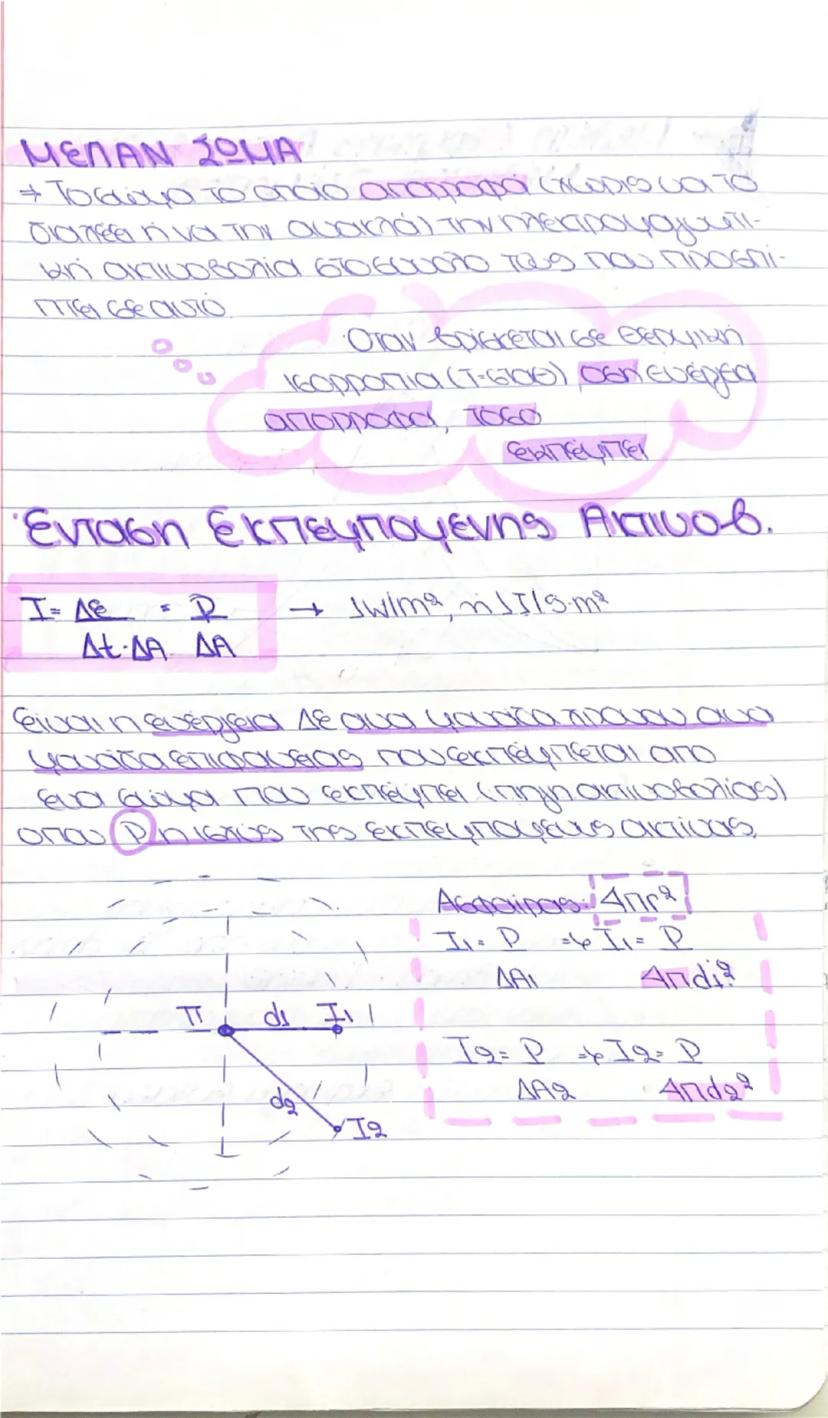 ΜΕΛΑΝ ΣΩΜΑ
→ Το σώμα το οποίο απορροφά (χωρίς να το
διαπερνά ή να την ανακλά) την ηλεκτρομαγνητι-
κή ακτινοβολία στο σύνολο της που προσπί-
πτει σε αυτό.
Όταν βρίσκεται σε θερμική
ισορροπία (Τ=σταθ) όση ενέργεια
απορροφά, τόσο
εκπέμπει
Ένταση Εκπεμπομένης Ακτινοβ.
I = Δε / Δt·ΔΑ = P / ΔΑ → 1W/m², ή 1J/s·m²
Είναι η ενέργεια Δε ανα μονάδα χρόνου ανα
μονάδα επιφάνειας που εκπέμπεται από
ένα σώμα που εκπέμπει (πηγή ακτινοβολίας)
όπου P η ισχύς της εκπεμπομένης ακτίνας.
Ασφαίρας: 4πr²
I₁ = P / ΔΑ₁ → I₁ = P / 4πd₁²
Π d₁ I₁
I₂ = P / ΔΑ₂ → I₂ = P / 4πd₂²
d₂
I₂